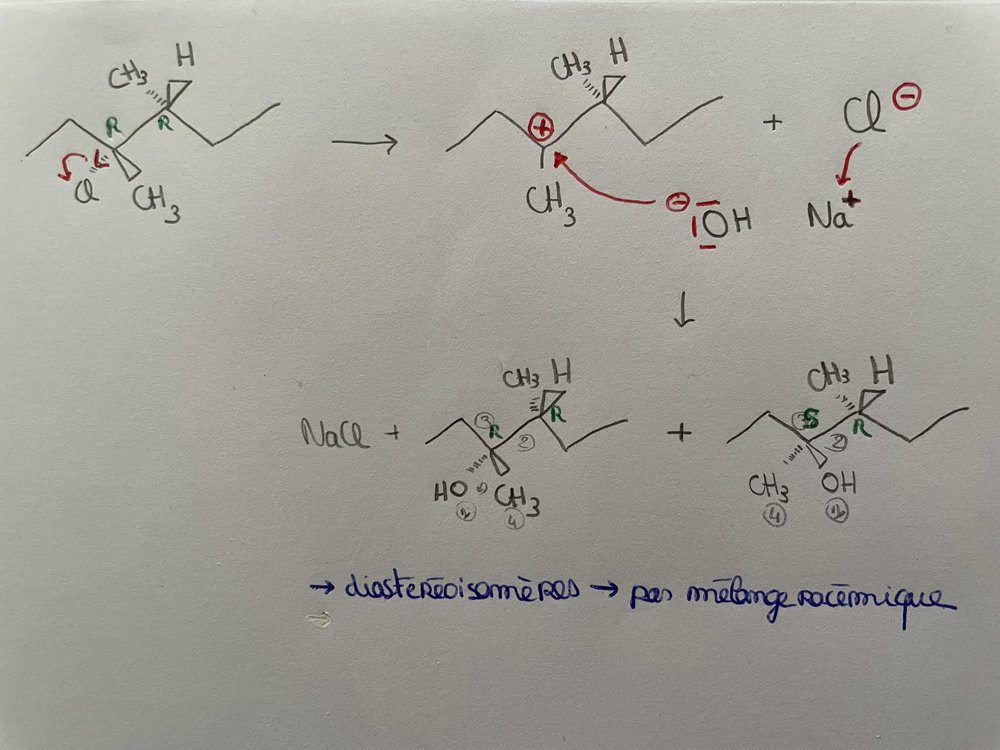 H
CH₃
R
R
Cl
CH₃
→
H
CH₃
⊕
CH₃
+
Cl ⊖
⊖ OH
Na⁺
↓
NaCl +
CH₃ H
③ R
R
②
HO
CH₃
④
+
CH₃ H
S
R
②
CH₃
OH
④
→ diastéréoisomères → pas mélange racémique
⇒